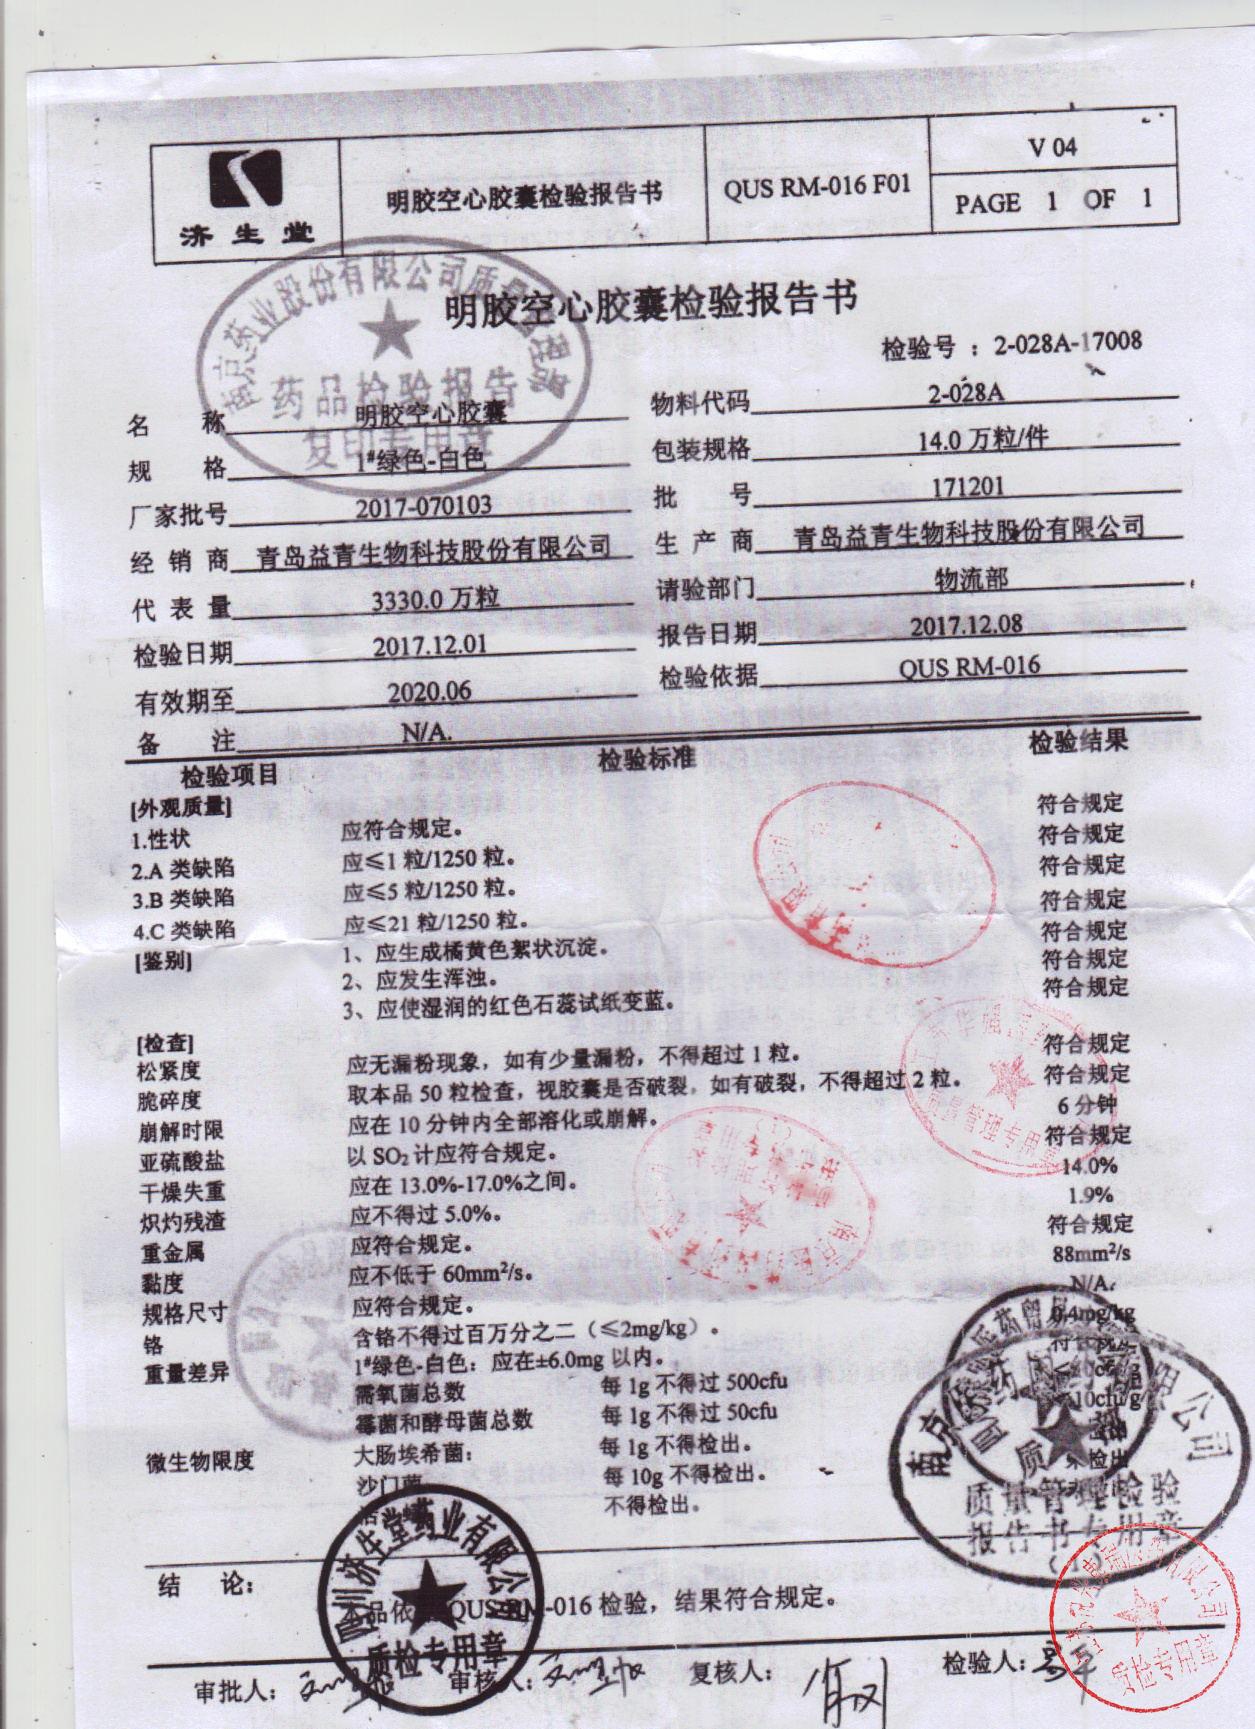 济生堂
明胶空心胶囊检验报告书
QUS RM-016 F01
V 04
PAGE 1 OF 1
明胶空心胶囊检验报告书
检验号 : 2-028A-17008
药品检验报告
复印专用章
名 称 明胶空心胶囊 物料代码 2-028A
规 格 1#绿色-白色 包装规格 14.0 万粒/件
厂家批号 2017-070103 批 号 171201
经 销 商 青岛益青生物科技股份有限公司 生 产 商 青岛益青生物科技股份有限公司
代 表 量 3330.0 万粒 请验部门 物流部
检验日期 2017.12.01 报告日期 2017.12.08
有效期至 2020.06 检验依据 QUS RM-016
备 注 N/A.
检验项目 检验标准 检验结果
[外观质量]
1.性状 应符合规定。 符合规定
2.A 类缺陷 应≤1 粒/1250 粒。 符合规定
3.B 类缺陷 应≤5 粒/1250 粒。 符合规定
4.C 类缺陷 应≤21 粒/1250 粒。 符合规定
[鉴别] 1、应生成橘黄色絮状沉淀。 符合规定
2、应发生浑浊。 符合规定
3、应使湿润的红色石蕊试纸变蓝。 符合规定
[检查]
松紧度 应无漏粉现象，如有少量漏粉，不得超过 1 粒。 符合规定
脆碎度 取本品 50 粒检查，视胶囊是否破裂，如有破裂，不得超过 2 粒。 符合规定
崩解时限 应在 10 分钟内全部溶化或崩解。 6 分钟
亚硫酸盐 以 SO₂ 计应符合规定。 符合规定
干燥失重 应在 13.0%-17.0%之间。 14.0%
炽灼残渣 应不得过 5.0%。 1.9%
重金属 应符合规定。 符合规定
黏度 应不低于 60mm²/s。 88mm²/s
规格尺寸 应符合规定。 N/A.
铬 含铬不得过百万分之二（≤2mg/kg）。 0.4mg/kg
重量差异 1#绿色-白色：应在±6.0mg 以内。
需氧菌总数 每 1g 不得过 500cfu
霉菌和酵母菌总数 每 1g 不得过 50cfu 10cfu/g
微生物限度 大肠埃希菌： 每 1g 不得检出。
沙门菌 每 10g 不得检出。 检出
不得检出。
质量管理检验
报告书专用章
结 论：
本品依 QUS RM-016 检验，结果符合规定。
四川济生堂药业有限公司
质检专用章
质检专用章
审批人： 审核人： 复核人： 检验人：